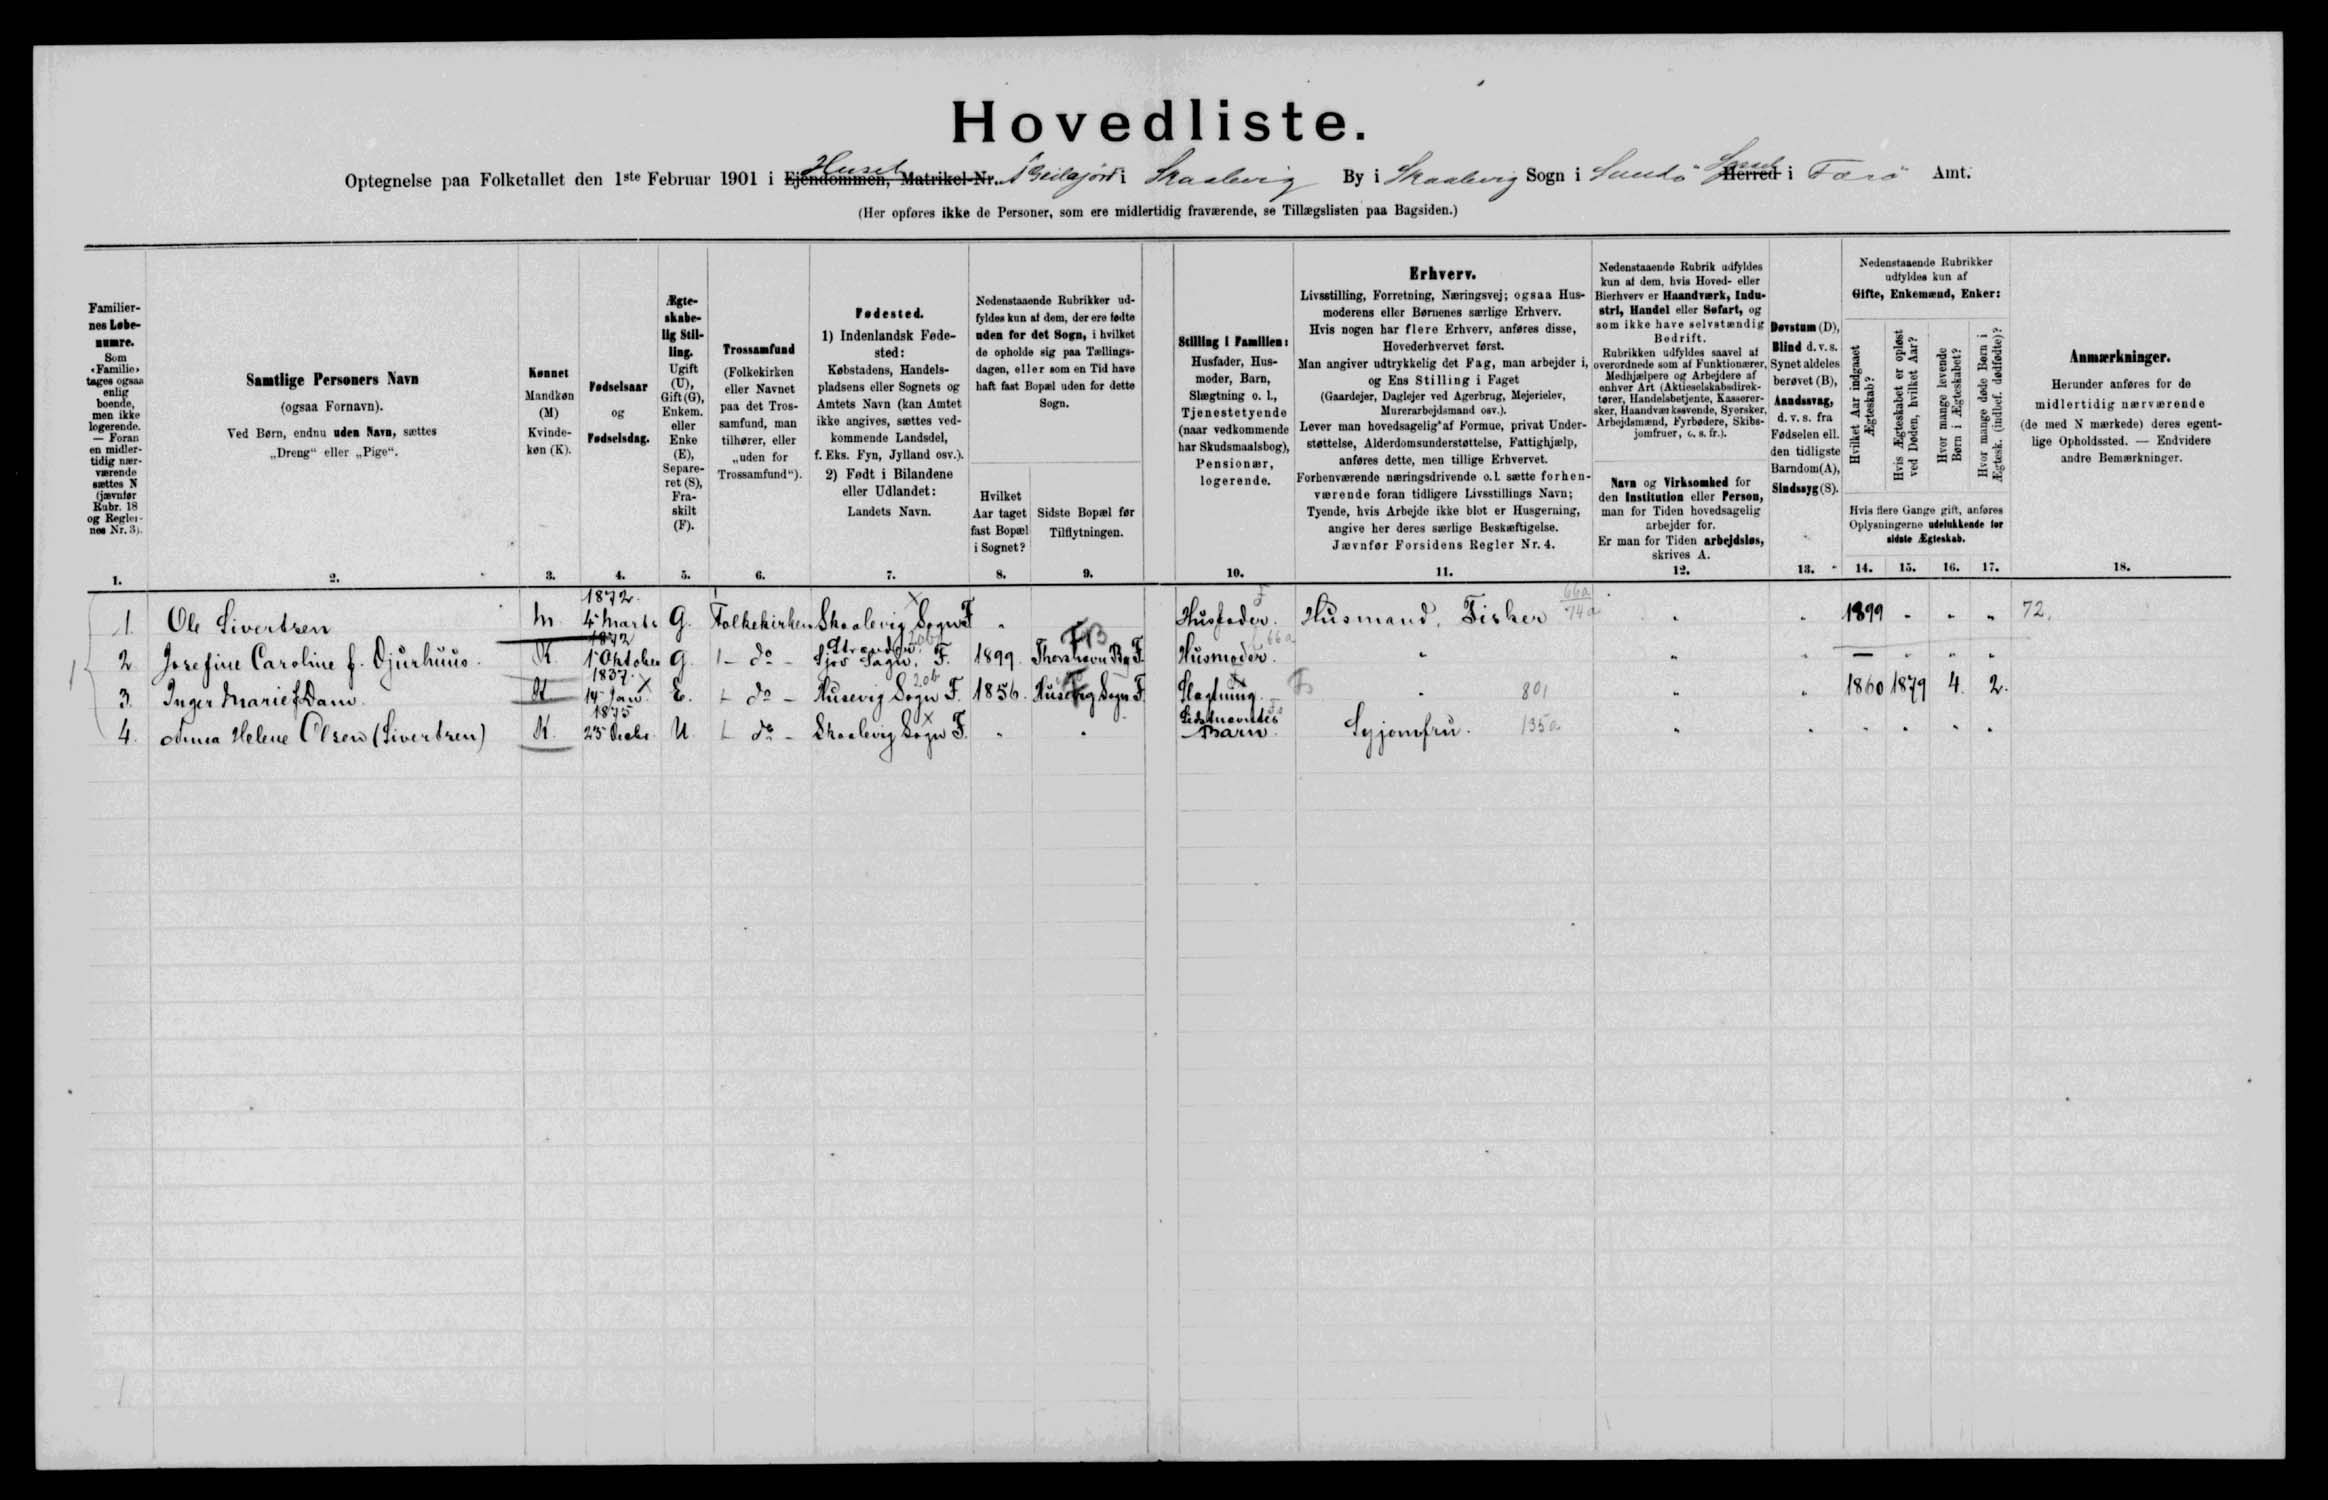 Hovedliste.
Huset Syssel
Optegnelse paa Folketallet den 1ste Februar 1901 i Ejendommen, Matrikel-Nr. i Skaalevig By i Skaalevig Sogn i Sandø Herred i Færø Amt.
(Her opføres ikke de Personer, som ere midlertidig fraværende, se Tillægslisten paa Bagsiden.)
Familiernes Løbenumre.
Som «Familie» tages ogsaa enlig boende, men ikke logerende. — Foran en midlertidig nærværende sættes N (jævnfør Rubr. 18 og Reglernes Nr. 3).
1.
Samtlige Personers Navn
(ogsaa Fornavn).
Ved Børn, endnu uden Navn, sættes
„Dreng“ eller „Pige“.
2.
Kønnet
Mandkøn (M)
Kvindekøn (K).
3.
Fødselsaar
og
Fødselsdag.
4.
Ægteskabelig Stilling.
Ugift (U), Gift (G), Enkem. eller Enke (E), Separeret (S), Fraskilt (F).
5.
Trossamfund
(Folkekirken eller Navnet paa det Trossamfund, man tilhører, eller „uden for Trossamfund“).
6.
Fødested.
1) Indenlandsk Fødested:
Købstadens, Handelspladsens eller Sognets og Amtets Navn (kan Amtet ikke angives, sættes vedkommende Landsdel, f. Eks. Fyn, Jylland osv.).
2) Født i Bilandene eller Udlandet:
Landets Navn.
7.
Nedenstaaende Rubrikker udfyldes kun af dem, der ere fødte uden for det Sogn, i hvilket de opholde sig paa Tællingsdagen, eller som en Tid have haft fast Bopæl uden for dette Sogn.
Hvilket Aar taget fast Bopæl i Sognet?
8.
Sidste Bopæl før Tilflytningen.
9.
Stilling i Familien:
Husfader, Husmoder, Barn, Slægtning o. l., Tjenestetyende (naar vedkommende har Skudsmaalsbog), Pensionær, logerende.
10.
Erhverv.
Livsstilling, Forretning, Næringsvej; ogsaa Husmoderens eller Børnenes særlige Erhverv.
Hvis nogen har flere Erhverv, anføres disse, Hovederhvervet først.
Man angiver udtrykkelig det Fag, man arbejder i, og Ens Stilling i Faget
(Gaardejer, Daglejer ved Agerbrug, Mejerielev, Murerarbejdsmand osv.).
Lever man hovedsagelig af Formue, privat Understøttelse, Alderdomsunderstøttelse, Fattighjælp, anføres dette, men tillige Erhvervet.
Forhenværende næringsdrivende o. l. sætte forhenværende foran tidligere Livsstillings Navn;
Tyende, hvis Arbejde ikke blot er Husgerning, angive her deres særlige Beskæftigelse.
Jævnfør Forsidens Regler Nr. 4.
11.
Nedenstaaende Rubrik udfyldes kun af dem, hvis Hoved- eller Bierhverv er Haandværk, Industri, Handel eller Søfart, og som ikke have selvstændig Bedrift.
Rubrikken udfyldes saavel af overordnede som af Funktionærer, Medhjælpere og Arbejdere af enhver Art (Aktieselskabsdirektører, Handelsbetjente, Kasserersker, Haandværkssvende, Syersker, Arbejdsmænd, Fyrbødere, Skibsjomfruer, o. s. fr.).
Navn og Virksomhed for den Institution eller Person, man for Tiden hovedsagelig arbejder for.
Er man for Tiden arbejdsløs, skrives A.
12.
Døvstum (D), Blind d. v. s. Synet aldeles berøvet (B), Aandssvag, d. v. s. fra Fødselen ell. den tidligste Barndom (A), Sindssyg (S).
13.
Nedenstaaende Rubrikker udfyldes kun af
Gifte, Enkemænd, Enker:
Hvilket Aar indgaaet Ægteskab?
Hvis Ægteskabet er opløst ved Døden, hvilket Aar?
Hvor mange levende Børn i Ægteskabet?
Hvor mange døde Børn i Ægtesk. (indbef. dødfødte)?
Hvis flere Gange gift, anføres Oplysningerne udelukkende for sidste Ægteskab.
14. 15. 16. 17.
Anmærkninger.
Herunder anføres for de midlertidig nærværende (de med N mærkede) deres egentlige Opholdssted. — Endvidere andre Bemærkninger.
18.
1. Ole Sivertsen M. 1872. 4 Marts G. Folkekirken Skaalevig Sogn F " Husfader. Husmand, Fisker 66a 74a 1899 72.
2 Josefine Caroline f. Djurhuus. K. 1872 1 Oktober G. - do - Sogn. F. 20b 1899. Thorshavn By F. Husmoder. 66a
3. Inger Marie f. Dam. K 1837. 14 Jan. E. - do - Husevig Sogn F. 20b 1856. Husevig Sogn F. Slægtning. 801 1860 1879 4. 2.
4. Anna Helene Olsen (Sivertsen) K. 1875 23 Decbr. U. - do - Skaalevig Sogn F. Sidstnævntes Barn. Syjomfru. 135a